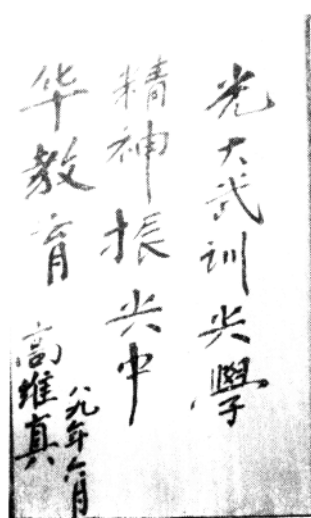 光大武训兴學
精神振兴中
华教育
高维真
八九年六月